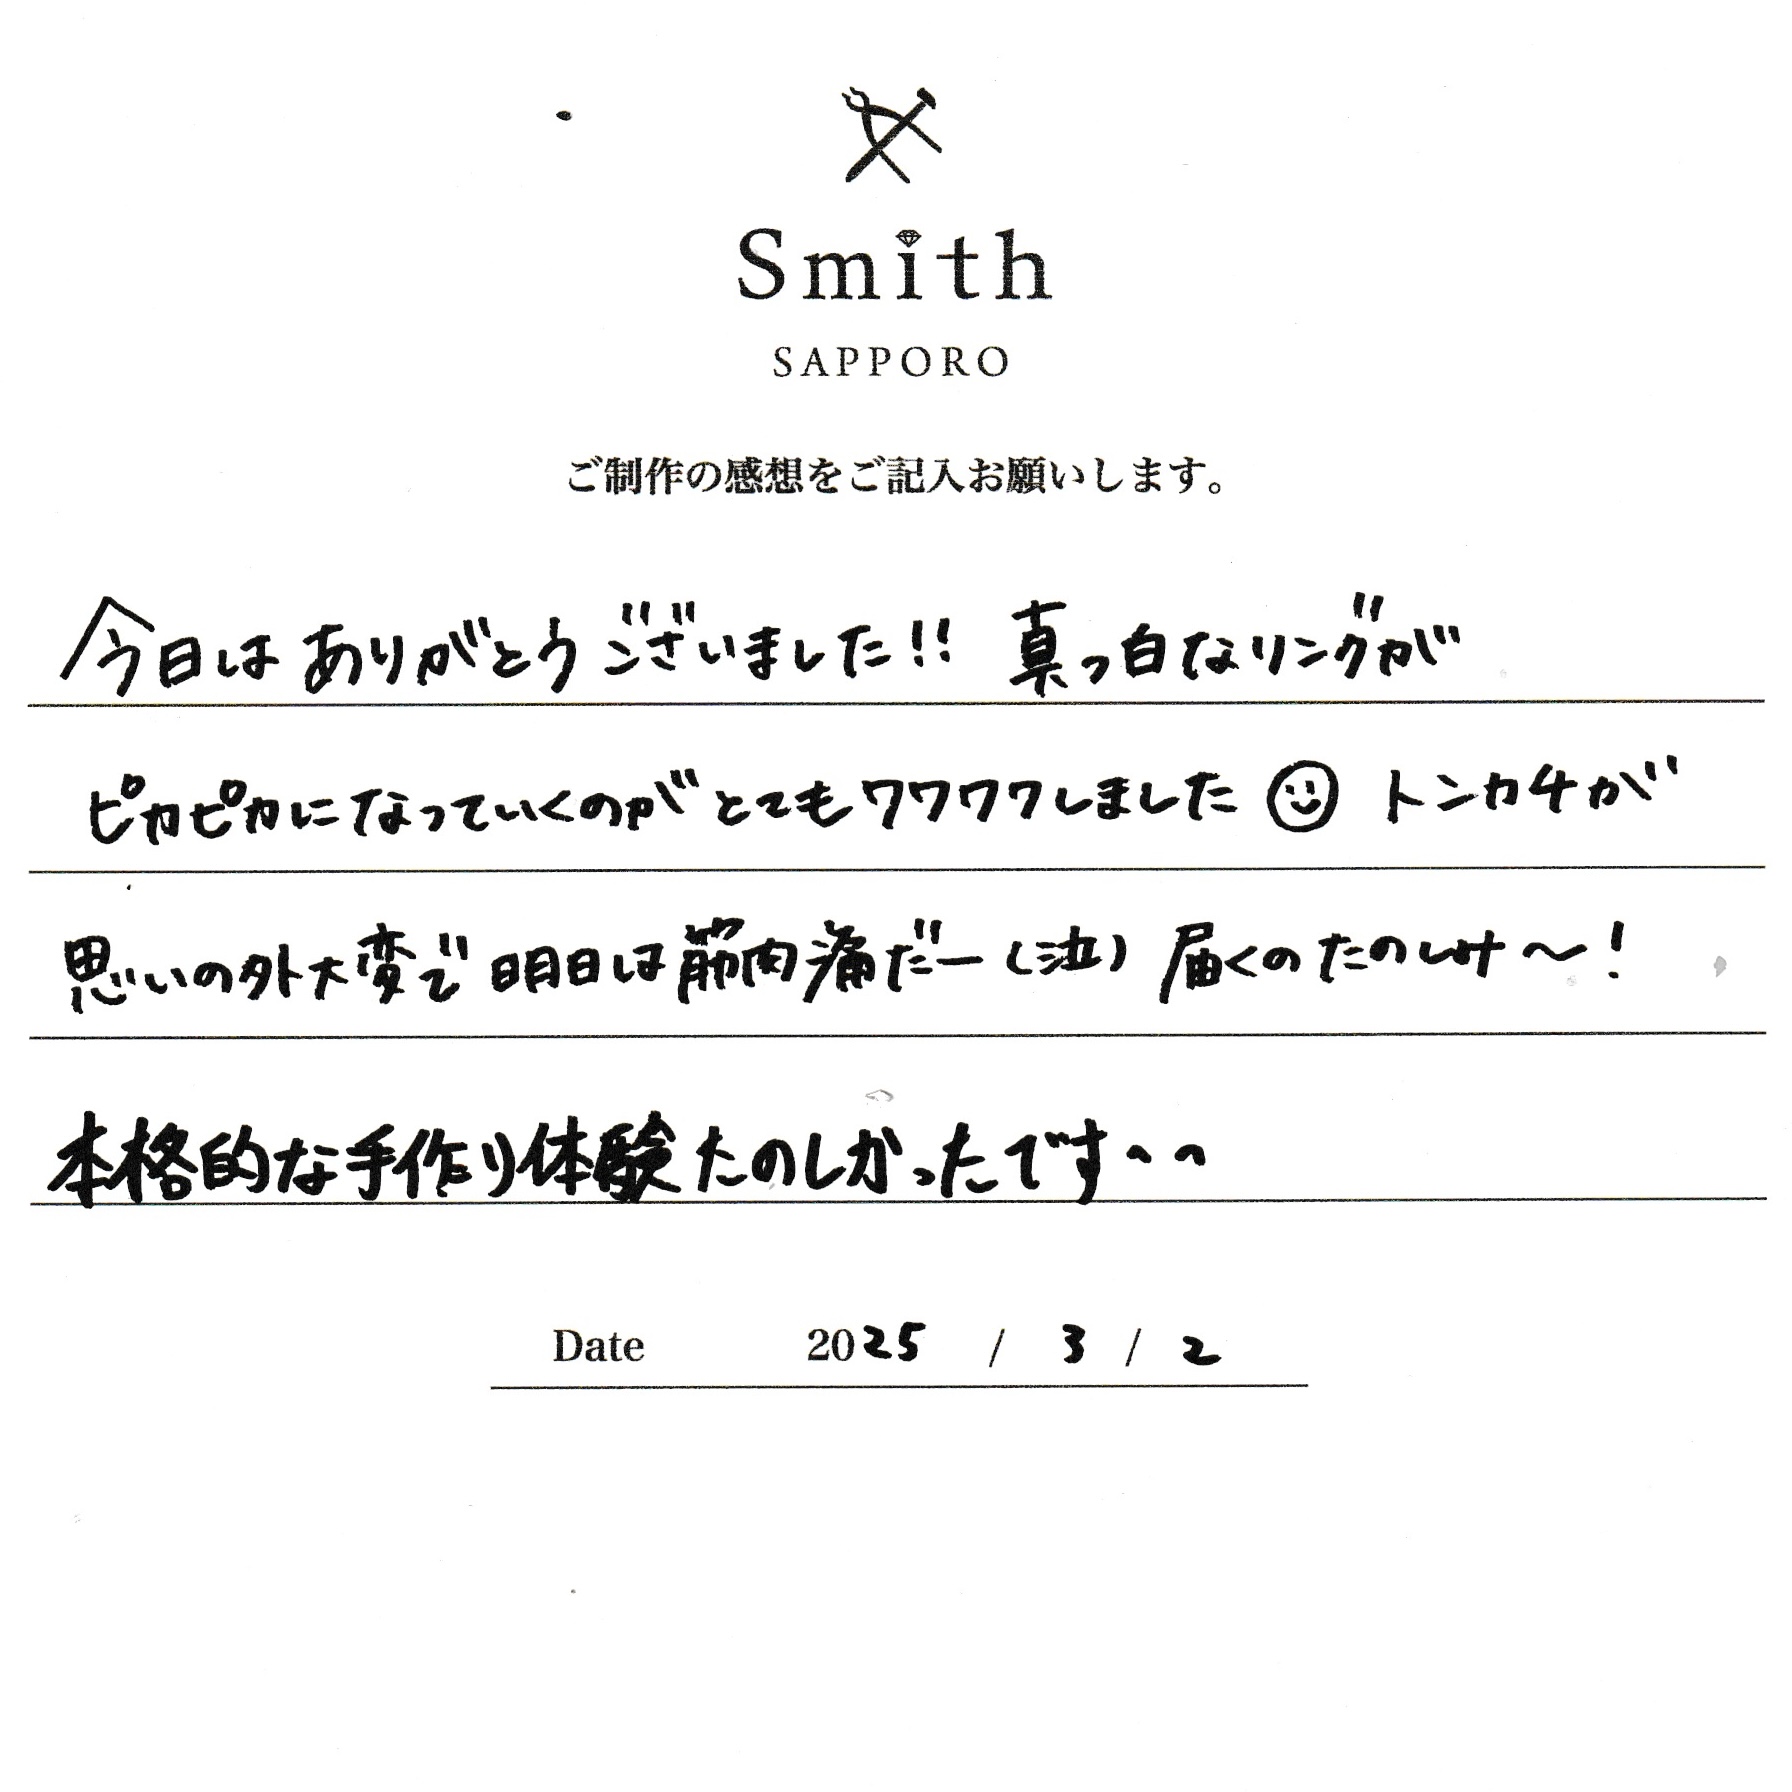 Smith
SAPPORO
ご制作の感想をご記入お願いします。
今日はありがとうございました!! 真っ白なリングが
ピカピカになっていくのがとてもワクワクしました☺ トンカチが
思いの外大変で明日は筋肉痛だー(泣) 届くのたのしみ〜!
本格的な手作り体験たのしかったです^^
Date 2025 / 3 / 2